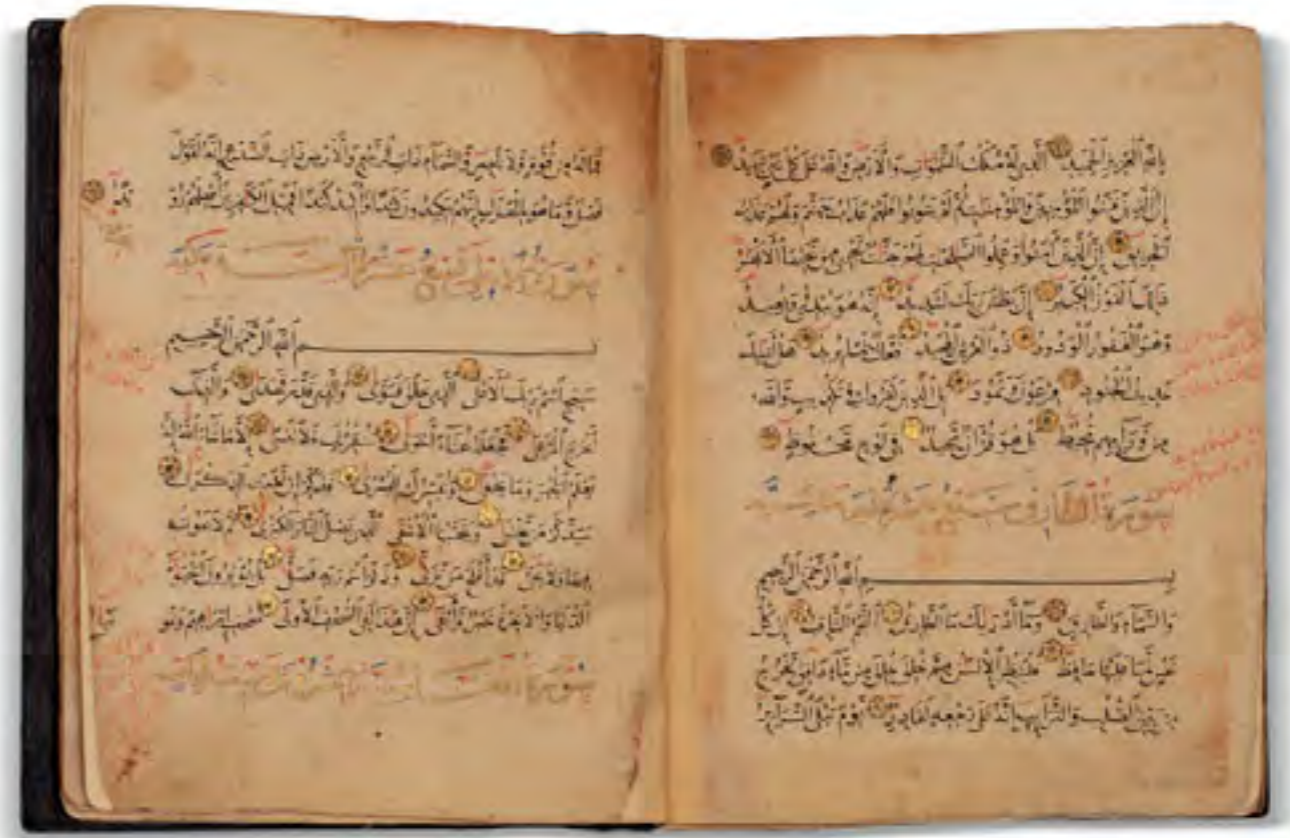 بِاللَّهِ الْعَزِيزِ الْحَمِيدِ الَّذِي لَهُ مُلْكُ السَّمَٰوَاتِ وَالْأَرْضِ وَاللَّهُ عَلَىٰ كُلِّ شَيْءٍ شَهِيدٌ
إِنَّ الَّذِينَ فَتَنُوا الْمُؤْمِنِينَ وَالْمُؤْمِنَٰتِ ثُمَّ لَمْ يَتُوبُوا فَلَهُمْ عَذَابُ جَهَنَّمَ وَلَهُمْ عَذَابُ
الْحَرِيقِ إِنَّ الَّذِينَ ءَامَنُوا وَعَمِلُوا الصَّٰلِحَٰتِ لَهُمْ جَنَّٰتٌ تَجْرِي مِنْ تَحْتِهَا الْأَنْهَٰرُ
ذَٰلِكَ الْفَوْزُ الْكَبِيرُ إِنَّ بَطْشَ رَبِّكَ لَشَدِيدٌ إِنَّهُ هُوَ يُبْدِئُ وَيُعِيدُ
وَهُوَ الْغَفُورُ الْوَدُودُ ذُو الْعَرْشِ الْمَجِيدُ فَعَّالٌ لِمَا يُرِيدُ هَلْ أَتَىٰكَ
حَدِيثُ الْجُنُودِ فِرْعَوْنَ وَثَمُودَ بَلِ الَّذِينَ كَفَرُوا فِي تَكْذِيبٍ وَاللَّهُ
مِنْ وَرَائِهِمْ مُحِيطٌ بَلْ هُوَ قُرْءَانٌ مَجِيدٌ فِي لَوْحٍ مَحْفُوظٍ
سورة الطارق سبع عشرة
بِسْمِ اللَّهِ الرَّحْمَٰنِ الرَّحِيمِ
وَالسَّمَاءِ وَالطَّارِقِ وَمَا أَدْرَىٰكَ مَا الطَّارِقُ النَّجْمُ الثَّاقِبُ إِنْ كُلُّ
نَفْسٍ لَمَّا عَلَيْهَا حَافِظٌ فَلْيَنْظُرِ الْإِنْسَٰنُ مِمَّ خُلِقَ خُلِقَ مِنْ مَاءٍ دَافِقٍ يَخْرُجُ
مِنْ بَيْنِ الصُّلْبِ وَالتَّرَائِبِ إِنَّهُ عَلَىٰ رَجْعِهِ لَقَادِرٌ يَوْمَ تُبْلَى السَّرَائِرُ
فَمَا لَهُ مِنْ قُوَّةٍ وَلَا نَاصِرٍ وَالسَّمَاءِ ذَاتِ الرَّجْعِ وَالْأَرْضِ ذَاتِ الصَّدْعِ إِنَّهُ لَقَوْلٌ
فَصْلٌ وَمَا هُوَ بِالْهَزْلِ إِنَّهُمْ يَكِيدُونَ كَيْدًا وَأَكِيدُ كَيْدًا فَمَهِّلِ الْكَٰفِرِينَ أَمْهِلْهُمْ رُوَ يْدًا
سورة الاعلى تسع عشرة آية مكية
بِسْمِ اللَّهِ الرَّحْمَٰنِ الرَّحِيمِ
سَبِّحِ اسْمَ رَبِّكَ الْأَعْلَى الَّذِي خَلَقَ فَسَوَّىٰ وَالَّذِي قَدَّرَ فَهَدَىٰ وَالَّذِي
أَخْرَجَ الْمَرْعَىٰ فَجَعَلَهُ غُثَاءً أَحْوَىٰ سَنُقْرِئُكَ فَلَا تَنْسَىٰ إِلَّا مَا شَاءَ اللَّهُ إِنَّهُ
يَعْلَمُ الْجَهْرَ وَمَا يَخْفَىٰ وَنُيَسِّرُكَ لِلْيُسْرَىٰ فَذَكِّرْ إِنْ نَفَعَتِ الذِّكْرَىٰ
سَيَذَّكَّرُ مَنْ يَخْشَىٰ وَيَتَجَنَّبُهَا الْأَشْقَى الَّذِي يَصْلَى النَّارَ الْكُبْرَىٰ ثُمَّ لَا يَمُوتُ
فِيهَا وَلَا يَحْيَىٰ قَدْ أَفْلَحَ مَنْ تَزَكَّىٰ وَذَكَرَ اسْمَ رَبِّهِ فَصَلَّىٰ بَلْ تُؤْثِرُونَ الْحَيَوٰةَ
الدُّنْيَا وَالْآخِرَةُ خَيْرٌ وَأَبْقَىٰ إِنَّ هَٰذَا لَفِي الصُّحُفِ الْأُولَىٰ صُحُفِ إِبْرَاهِيمَ وَمُو